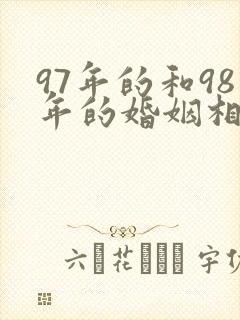 97年的和98
年的婚姻相
六 花 宇